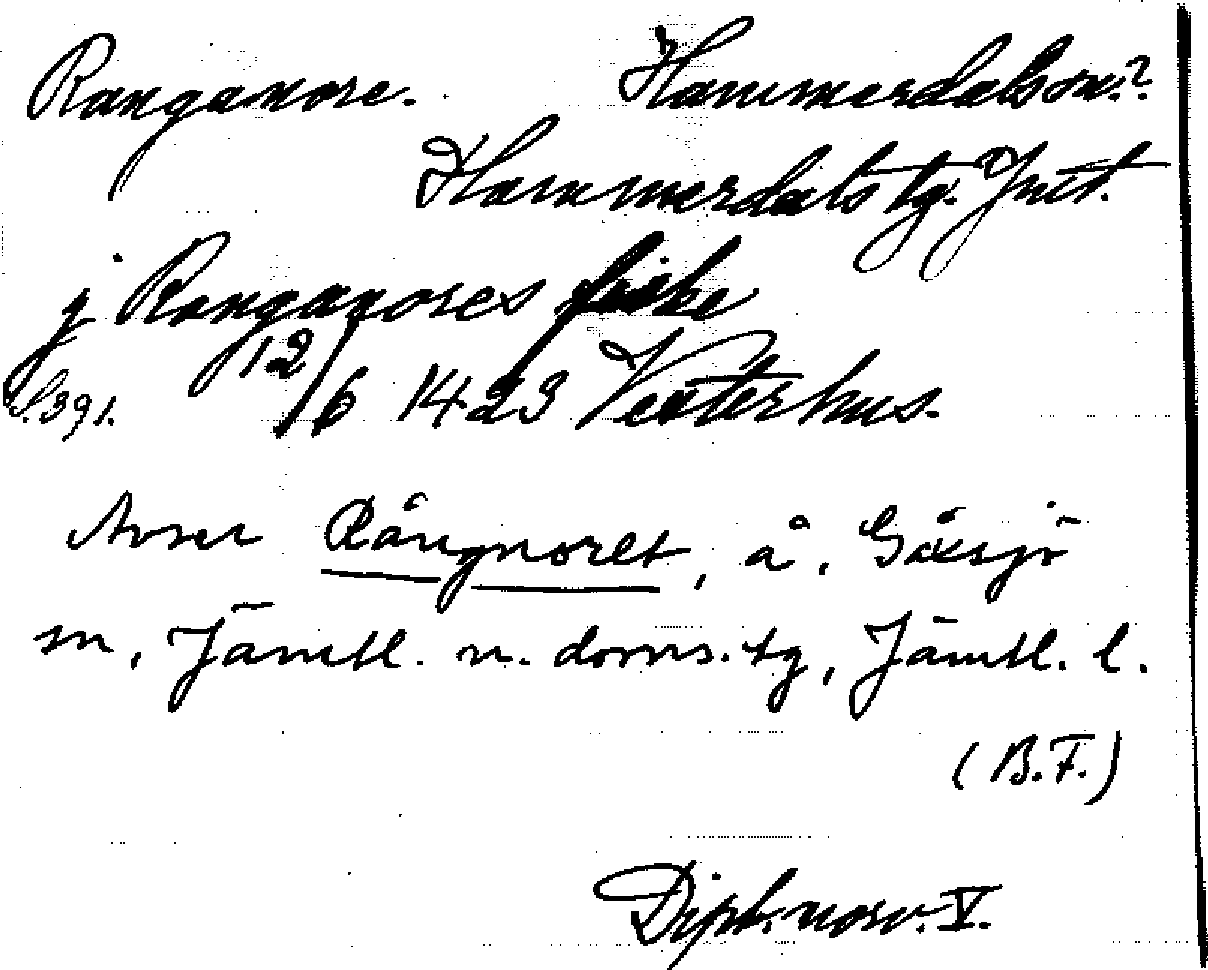 Ranganore. Hammerdals sn.?
Hammerdals tg. Jmt.
j Ranganores fiske
S. 391. 12/6 1423 Vesterhus.
Avser Rångnoret, å, Gåxsjö
sn, Jämtl. n. doms. tg, Jämtl. l.
(B.F.)
Dipl. norv. V.